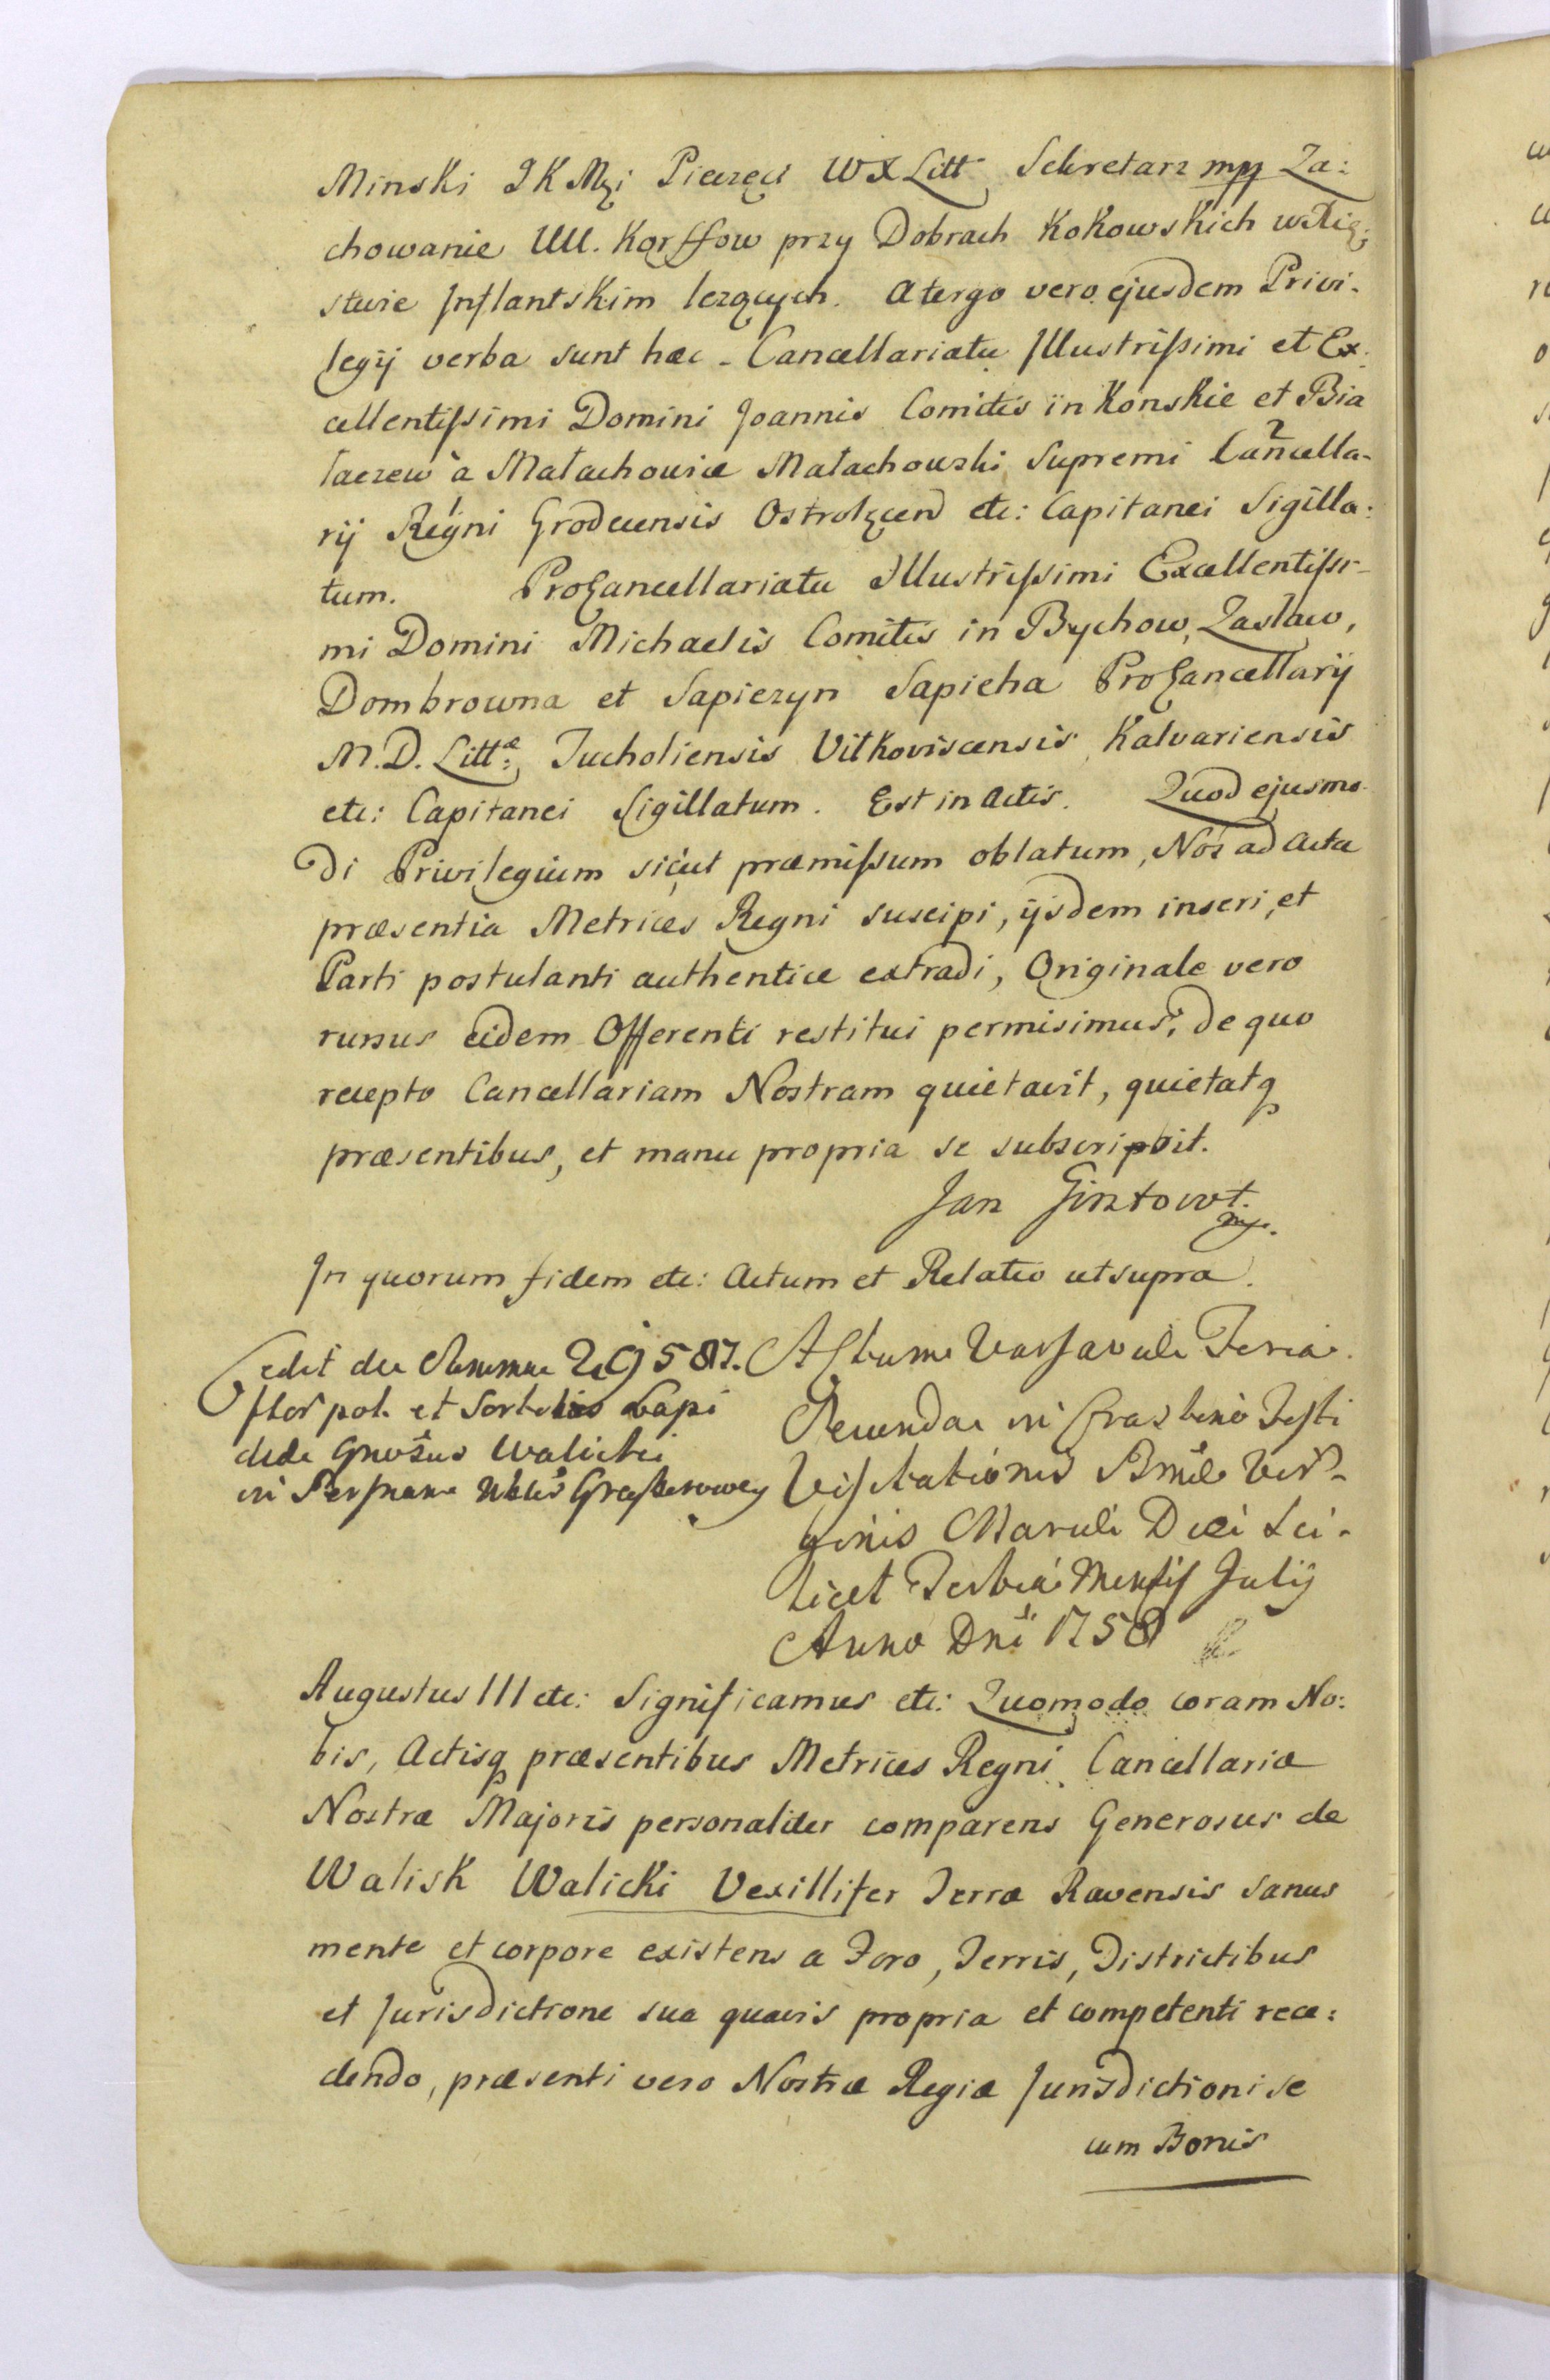 Minski JKMci Pieczęci WXLitt Sekretarz mpp Za:
chowanie UU. Korffow przy Dobrach Kokowskich w Xię:
stwie Inflantskim lezących. A tergo vero ejusdem Privi-
legij verba sunt hæc - Cancellariatu Illustrissimi et Ex:
cellentissimi Domini Joannis Comitis in Konskie et Bia
łaczew à Małachowice Małachowski Supremi Cancella-
rij Regni Grodecensis Ostrołęcen etc: Capitanei Sigilla:
tum. ProCancellariatu Illustrissimi Excellentissi-
mi Domini Michaelis Comitis in Bychow, Zasław,
Dombrowna et Sapiezyn Sapieha ProCancellarij
M.D. Littæ: Tucholiensis Vilkoviscensis Kalvariensis
etc: Capitanei Sigillatum. Est in Actis. Quod ejusmo-
di Privilegium sicut præmissum oblatum, Nos ad Acta
præsentia Metrices Regni suscipi, ijsdem inseri, et
Parti postulanti authentice extradi, Originale vero
rursus eidem Offerenti restitui permisimus, de quo
recepto Cancellariam Nostram quietavit, quietatq
præsentibus, et manu propria se subscripsit.
Jan Gintowt.
mp.
In quorum fidem etc: Actum et Relatio ut supra.
Cedit de Summa 29587.
flor pol. et
Gnosus Walicki
in
Actum Varsaviæ Feria
Secunda in Crastino Festi
Visitationis Bmæ Vir-
ginis Mariæ Die Sci-
licet Tertia Mensis Julij
Anno Dni 1758
Augustus III etc: Significamus etc: Quomodo coram No:
bis, Actisq præsentibus Metrices Regni Cancellariæ
Nostræ Majoris personaliter comparens Generosus de
Walisk Walicki Vexillifer Terræ Ravensis sanus
mente et corpore existens a Foro, Terris, Districtibus
et Jurisdictione sua quavis propria et competenti rece:
dendo, præsenti vero Nostræ Regiæ Jurisdictioni se
cum Bonis